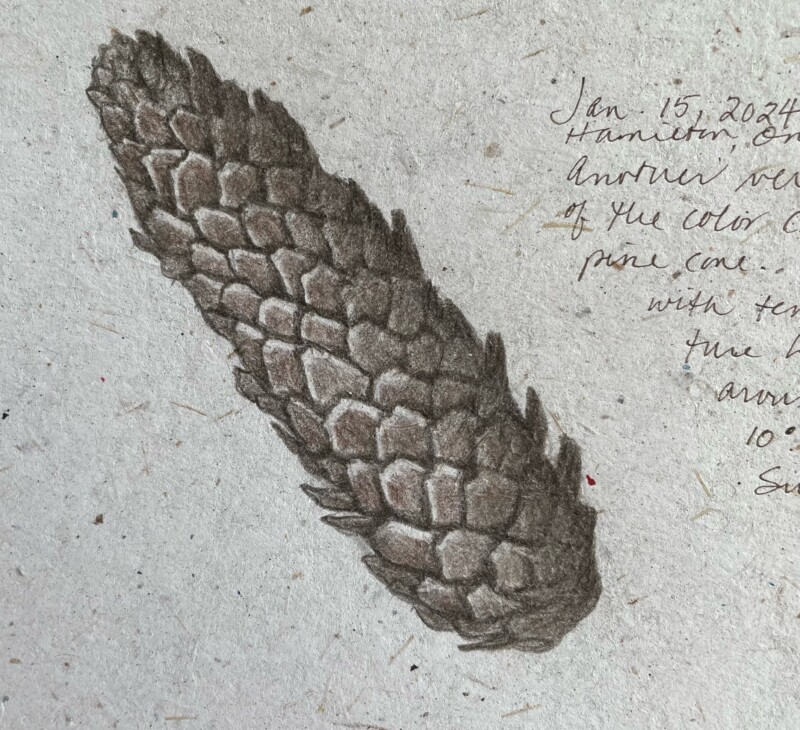 Jan. 15, 2024
Hamilton, On
Another ver
of the color c
pine cone..
with ten
ture h
aroun
10°
Su